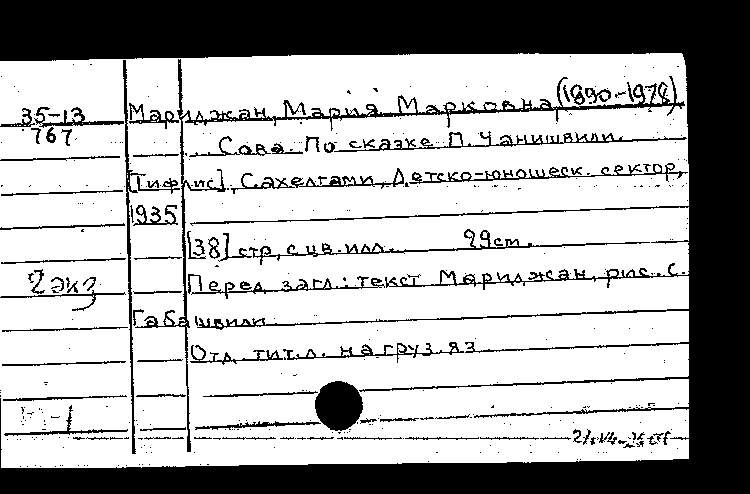 35-13 Мариджан, Мария Марковна (1890-1978)
767
Сова. По сказке П. Чанишвили.
[Тифлис], Сахелгами, Детско-юношеск. сектор,
1935
[38] стр, с цв. илл. 29cm.
2 экз Перед загл.: текст Мариджан, рис. С.
Габашвили
Отд. тит. л. на груз. яз